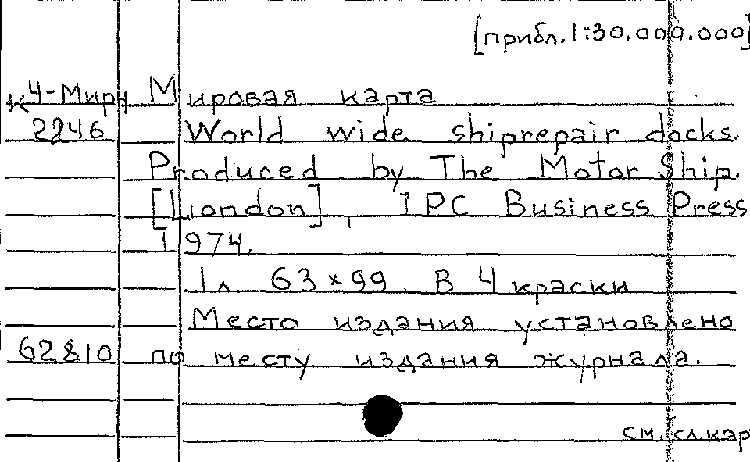 [прибл. 1:30.000.000]
К4-Мир Мировая карта
2246 World wide shiprepair docks.
Produced by The Motor Ship.
[London], IPC Business Press
1974.
1л. 63×99 В 4 краски
Место издания установлено
62810 по месту издания журнала.
см. сл. кар